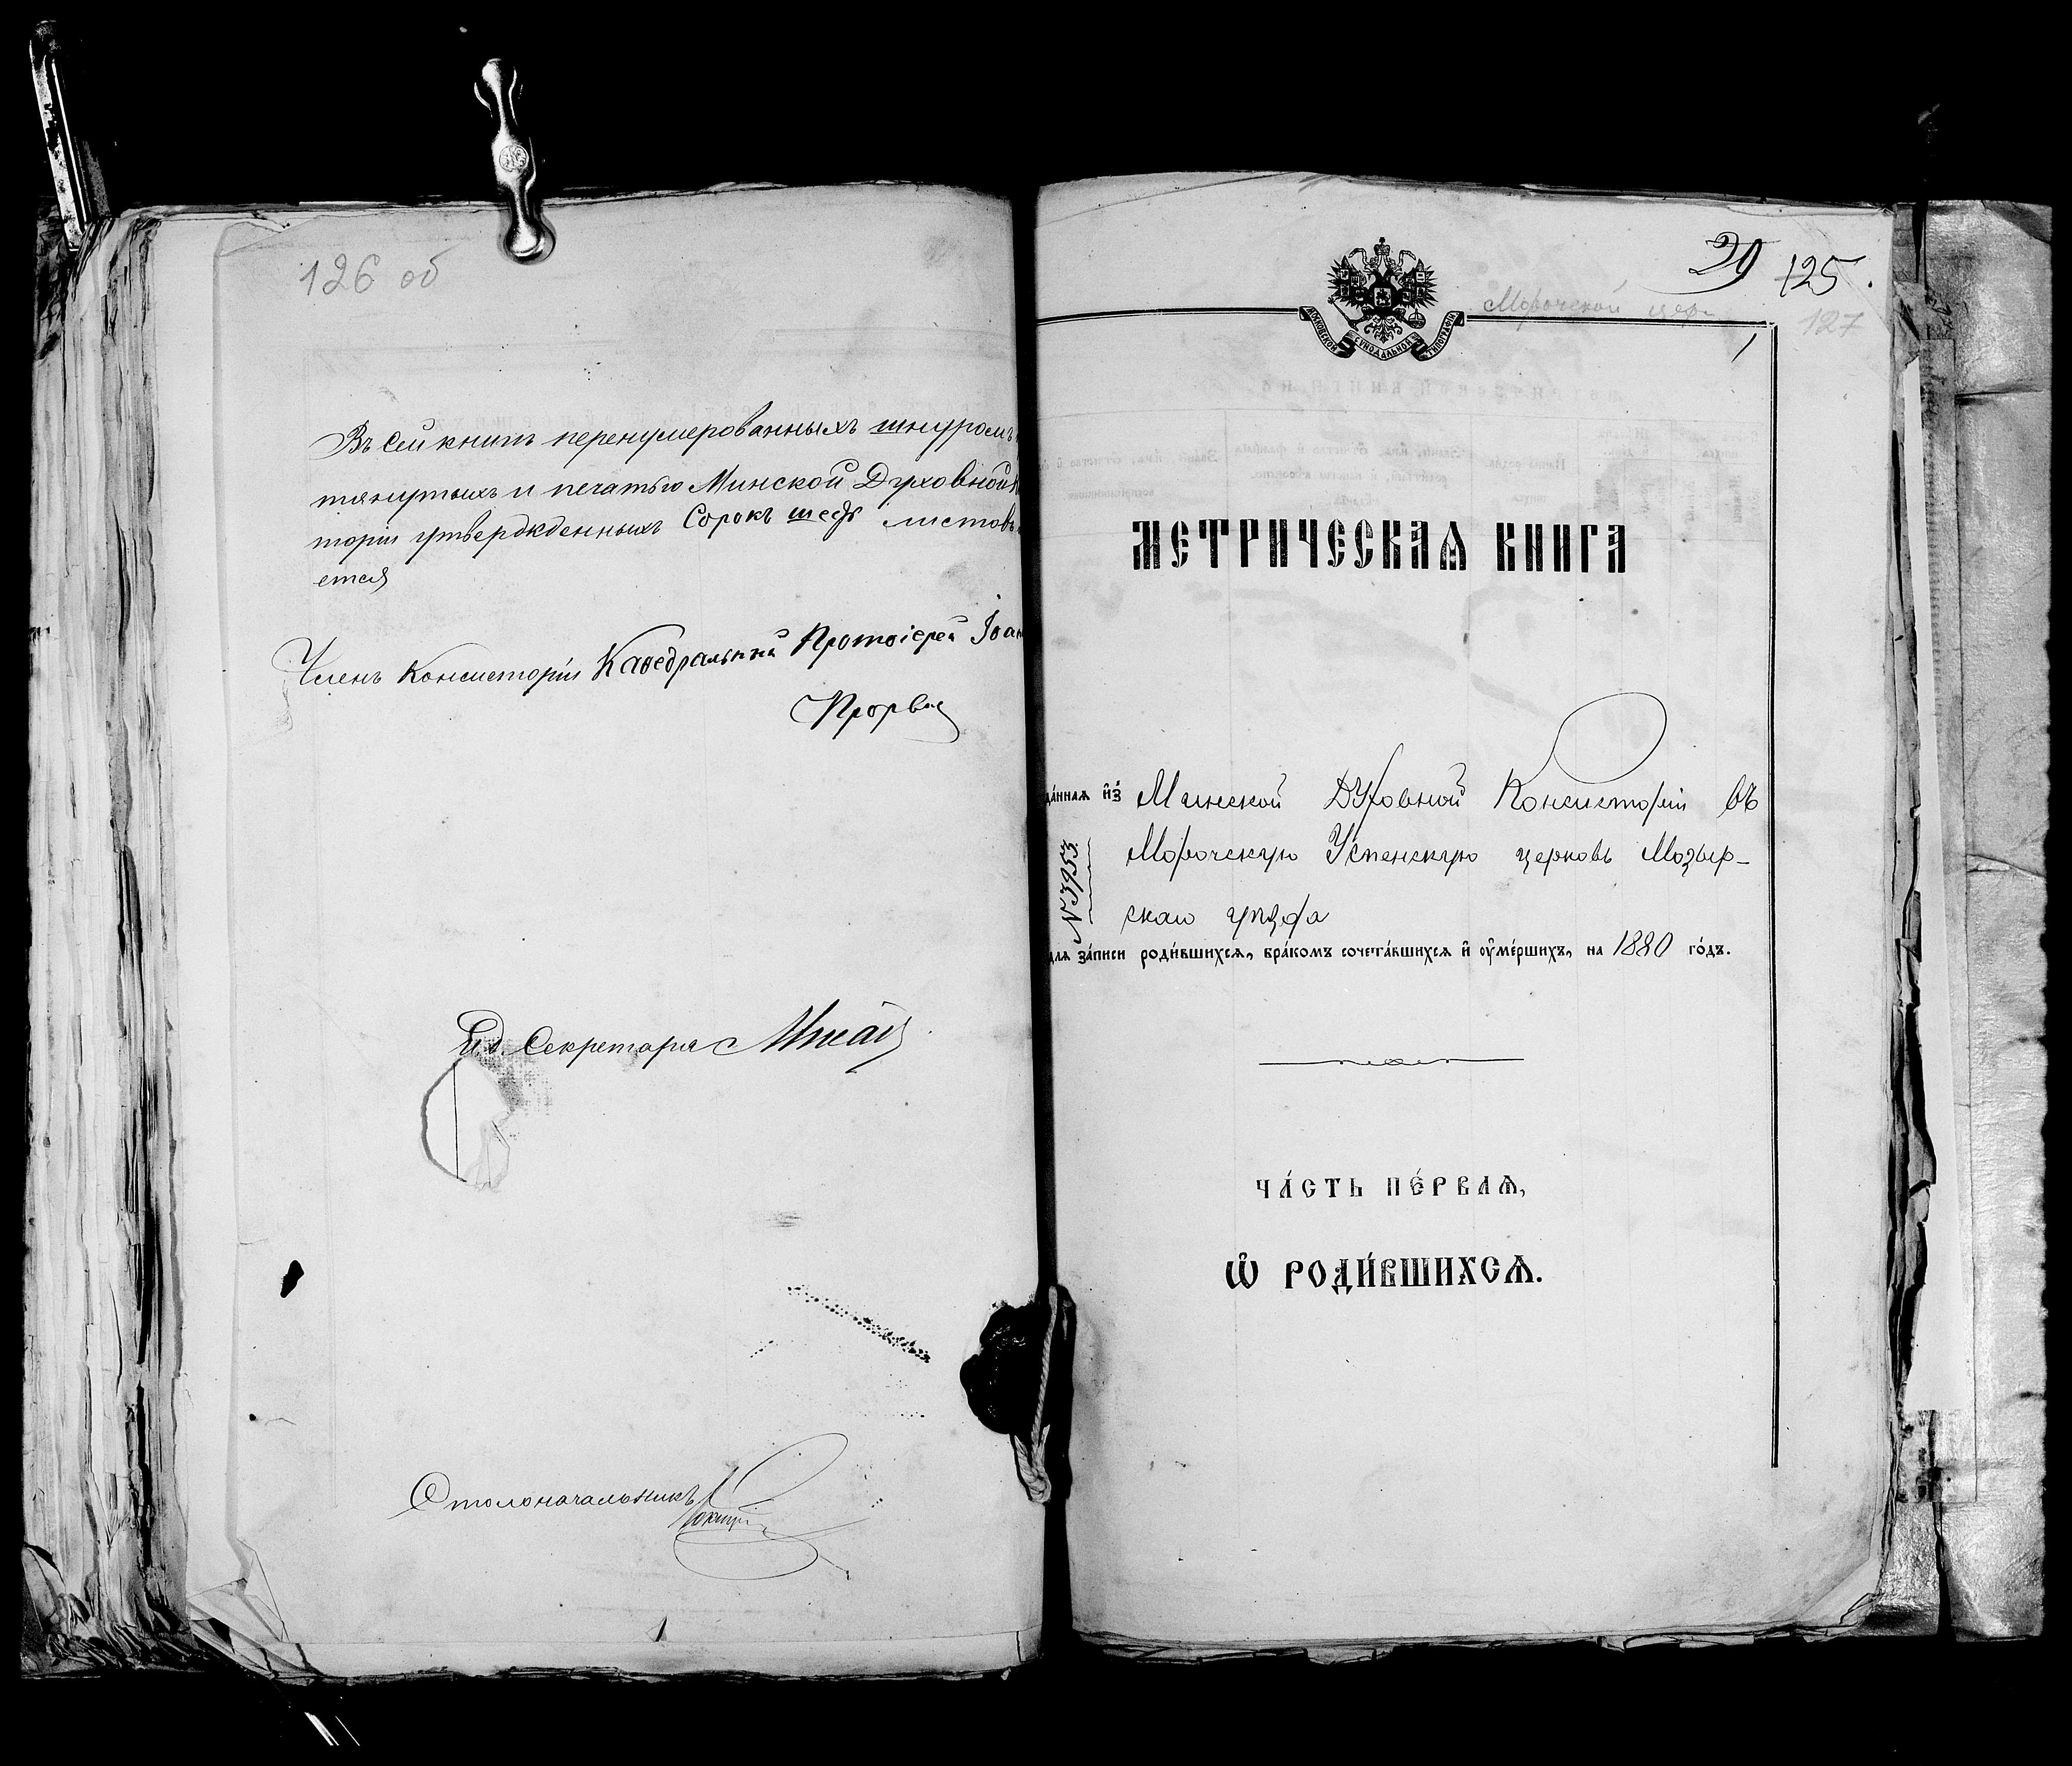 126 об
Въ сей книгѣ перенумерованныхъ шнуромъ
тянутыхъ и печатью Минской Духовной
торіи утвержденныхъ Сорокъ шесть листовъ
ется
Членъ Консисторіи Каѳедральный Протоіерей Іоан
Прорвич
И. д. Секретаря
Столоначальникъ
29 125.
Морочской цер
127
МОСКОВСКОЙ СѴНОДАЛЬНОЙ ТИПОГРАФІИ
МЕТРИЧЕСКАѦ КНИГА
да́ннаѧ и҆з̾ Минской Духовной Консисторіи въ
Морочскую Успенскую церковь Мозыр-
скаго уѣзда
№ 3953.
для за́писи роди́вшихсѧ, бра́комъ сочета́вшихсѧ и҆ оу҆ме́ршихъ, на 1880 го́дъ.
ЧА́СТЬ ПЕ́РВАѦ,
Ѡ҆ РОДИ́ВШИХСѦ.